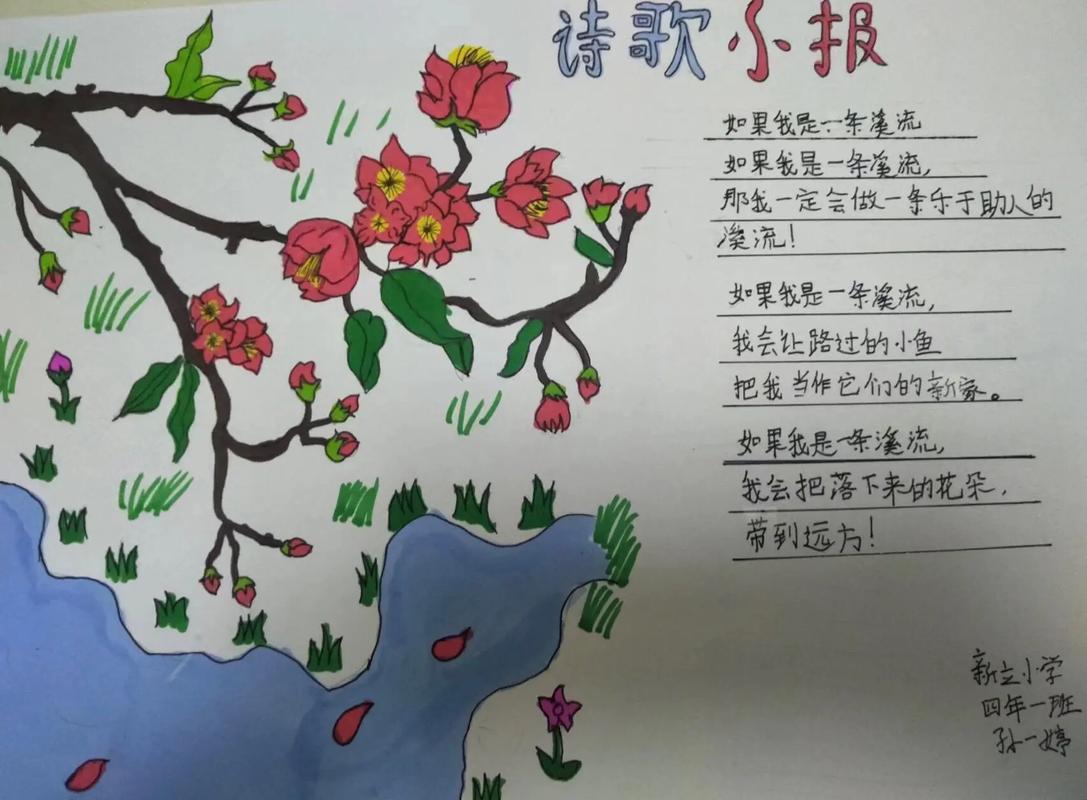 诗歌小报
如果我是一条溪流
如果我是一条溪流,
那我一定会做一条乐于助人的
溪流!
如果我是一条溪流,
我会让路过的小鱼
把我当作它们的新家。
如果我是一条溪流,
我会把落下来的花朵,
带到远方!
新立小学
四年一班
孙一婷